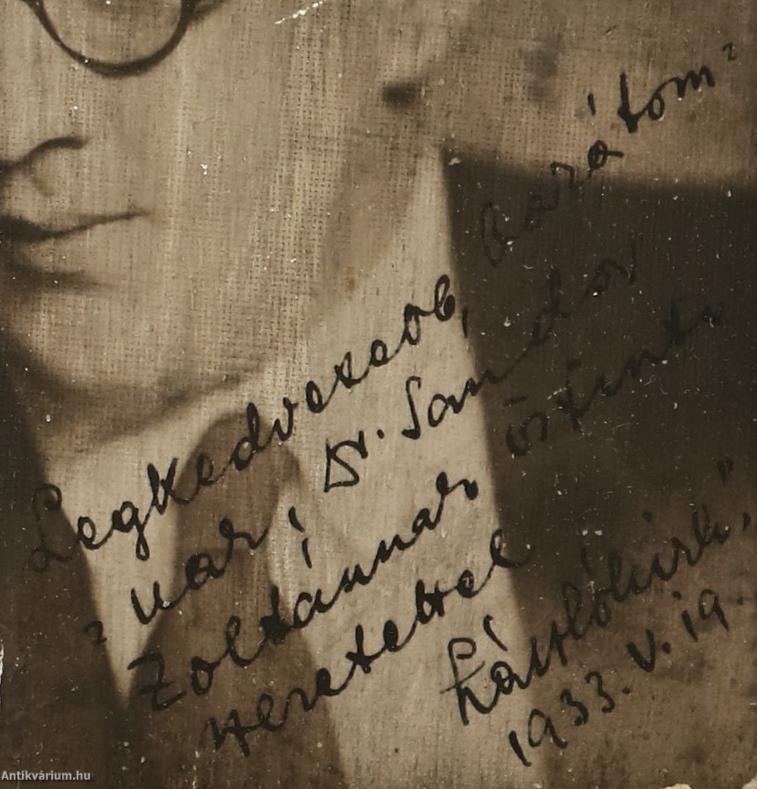 Legkedvesebb, barátom-
-nak, Dr. Sándor
Zoltánnak őszinte
szeretettel
1933. V. 19.
Antikvárium.hu